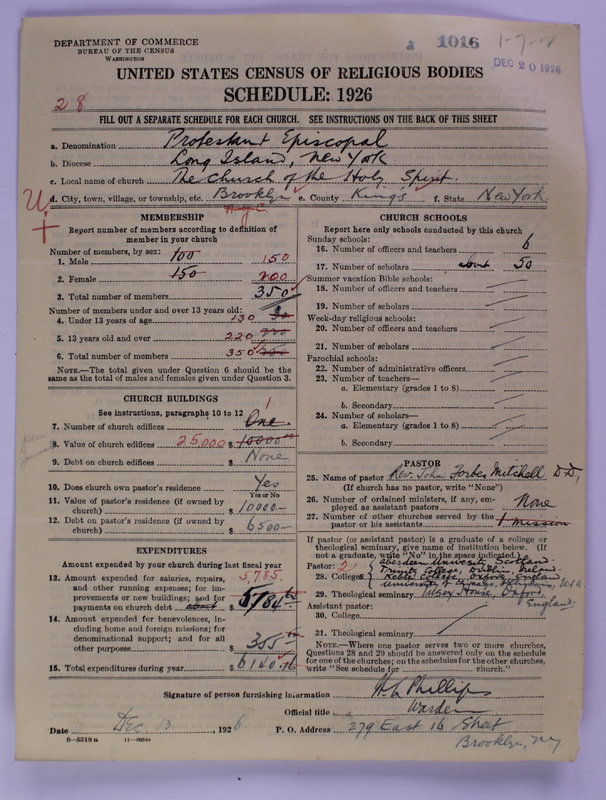 DEPARTMENT OF COMMERCE
BUREAU OF THE CENSUS
WASHINGTON
1016
DEC 20 1926
UNITED STATES CENSUS OF RELIGIOUS BODIES
SCHEDULE: 1926
28
FILL OUT A SEPARATE SCHEDULE FOR EACH CHURCH. SEE INSTRUCTIONS ON THE BACK OF THIS SHEET
a. Denomination Protestant Episcopal
b. Diocese Long Island, New York
c. Local name of church The Church of the Holy Spirit.
d. City, town, village, or township, etc. Brooklyn e. County King's f. State New York
MEMBERSHIP
Report number of members according to definition of member in your church
Number of members, by sex:
1. Male 100 150
2. Female 150 200
3. Total number of members 350
Number of members under and over 13 years old:
4. Under 13 years of age 130
5. 13 years old and over 220
6. Total number of members 350
NOTE.—The total given under Question 6 should be the same as the total of males and females given under Question 3.
CHURCH BUILDINGS
See instructions, paragraphs 10 to 12
7. Number of church edifices One 1
8. Value of church edifices 25,000 $ 10000
9. Debt on church edifices $ None
10. Does church own pastor's residence Yes
Yes or No
11. Value of pastor's residence (if owned by church) $ 10000-
12. Debt on pastor's residence (if owned by church) $ 6500-
EXPENDITURES
Amount expended by your church during last fiscal year
13. Amount expended for salaries, repairs, and other running expenses; for improvements or new buildings; and for payments on church debt 5,785. $
14. Amount expended for benevolences, including home and foreign missions; for denominational support; and for all other purposes $ 355
15. Total expenditures during year $ 6140.
CHURCH SCHOOLS
Report here only schools conducted by this church
Sunday schools:
16. Number of officers and teachers 6
17. Number of scholars about 50
Summer vacation Bible schools:
18. Number of officers and teachers
19. Number of scholars
Week-day religious schools:
20. Number of officers and teachers
21. Number of scholars
Parochial schools:
22. Number of administrative officers
23. Number of teachers—
a. Elementary (grades 1 to 8)
b. Secondary
24. Number of scholars—
a. Elementary (grades 1 to 8)
b. Secondary
PASTOR
25. Name of pastor Rev. John Forbes Mitchell D.D.,
(If church has no pastor, write "None")
26. Number of ordained ministers, if any, employed as assistant pastors None
27. Number of other churches served by the pastor or his assistants 1 mission
If pastor (or assistant pastor) is a graduate of a college or theological seminary, give name of institution below. (If not a graduate, write "No" in the space indicated.)
Pastor: 2 Aberdeen University Scotland
Trinity College, Dublin, Ireland
28. Colleges Keble College, Oxford, England
29. Theological seminary Pusey House, Oxford, England.
Assistant pastor:
30. College
31. Theological seminary
NOTE.—Where one pastor serves two or more churches, Questions 28 and 29 should be answered only on the schedule for one of the churches; on the schedules for the other churches, write "See schedule for church."
Signature of person furnishing information H. L. Phillips
Official title Warden
Date Dec. 13, 1926 P. O. Address 279 East 16 Street
Brooklyn, NY
8—5518a